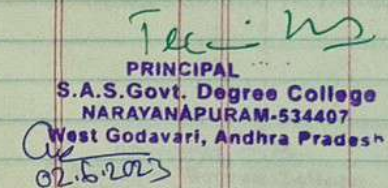 PRINCIPAL
S.A.S.Govt. Degree College
NARAYANAPURAM-534407
West Godavari, Andhra Pradesh
02.6.2023